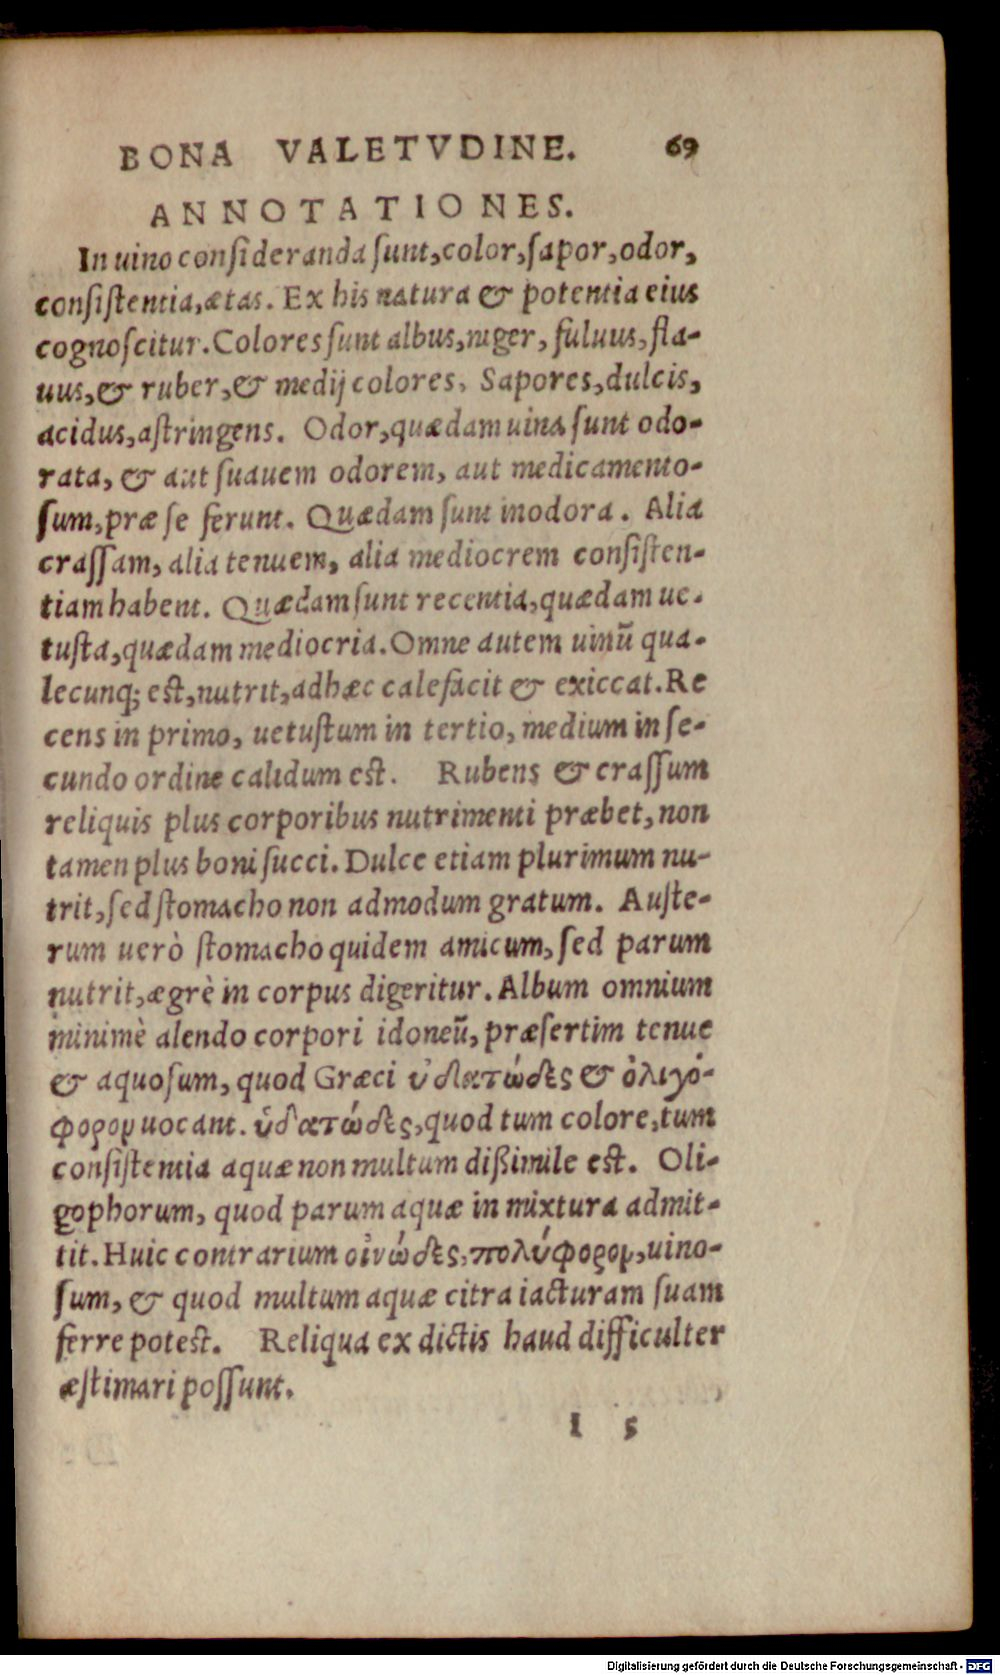 BONA VALETVDINE. 69
ANNOTATIONES.
In uino consideranda sunt, color, sapor, odor,
consistentia, ætas. Ex his natura & potentia eius
cognoscitur. Colores sunt albus, niger, fuluus, fla-
uus, & ruber, & medij colores. Sapores, dulcis,
acidus, astringens. Odor, quædam uina sunt odo-
rata, & aut suauem odorem, aut medicamento-
sum, præ se ferunt. Quædam sunt inodora. Alia
crassam, alia tenuem, alia mediocrem consisten-
tiam habent. Quædam sunt recentia, quædam ue-
tusta, quædam mediocria. Omne autem uinū qua-
lecunq; est, nutrit, adhæc calefacit & exiccat. Re
cens in primo, uetustum in tertio, medium in se-
cundo ordine calidum est. Rubens & crassum
reliquis plus corporibus nutrimenti præbet, non
tamen plus boni succi. Dulce etiam plurimum nu-
trit, sed stomacho non admodum gratum. Auste-
rum uerò stomacho quidem amicum, sed parum
nutrit, ægrè in corpus digeritur. Album omnium
minimè alendo corpori idoneū, præsertim tenue
& aquosum, quod Græci ὑδατώδες & ὀλιγό-
φορον uocant. ὑδατώδες, quod tum colore, tum
consistentia aquæ non multum dißimile est. Oli-
gophorum, quod parum aquæ in mixtura admit-
tit. Huic contrarium οἰνώδες, πολύφορον, uino-
sum, & quod multum aquæ citra iacturam suam
ferre potest. Reliqua ex dictis haud difficulter
æstimari possunt.
I 5
Digitalisierung gefördert durch die Deutsche Forschungsgemeinschaft - DFG